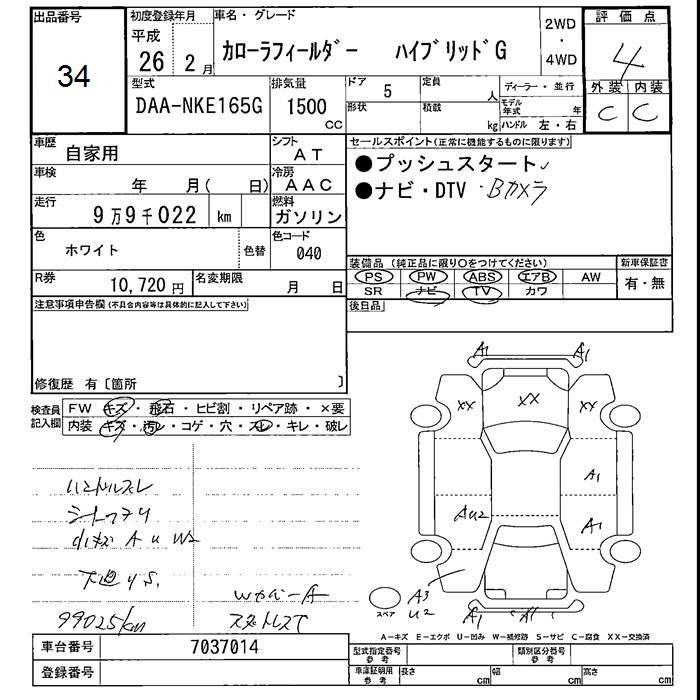 出品番号
34
初度登録年月
平成
26 2 月
車名・グレード
カローラフィールダー ハイブリッドG
2WD
・
4WD
評価点
4
外装 内装
C C
型式
DAA-NKE165G
排気量
1500
CC
ドア 5
形状
定員 人
積載 kg
ディーラー・並行
モデル年式 年
ハンドル 左・右
車歴
自家用
シフト
AT
車検
年 月( 日)
冷房
AAC
走行
9万9千022 km
燃料
ガソリン
色
ホワイト
色替
色コード
040
R券
10,720 円
名変期限
月 日
セールスポイント(正常に機能するものに限ります)
●プッシュスタート
●ナビ・DTV ・Bカメラ
装備品 (純正品に限り○をつけてください)
PS PW ABS エアB AW
SR ナビ TV カワ
新車保証書
有・無
後日品
注意事項申告欄(不具合内容等は具体的に記入して下さい)
修復歴 有〔箇所 〕
検査員
記入欄
FW キズ・飛石・ヒビ割・リペア跡・×要
内装 キズ・汚レ・コゲ・穴・スレ・キレ・破レ
ハンドルスレ
シート
A U W2
下廻りS.
99025km
A
A1 A1
XX XX XX
A1
AU2 A1
スペア
A3
U2
A1 A1
A-キズ E-エクボ U-凹み W-補修跡 S-サビ C-腐食 XX-交換済
車台番号
7037014
登録番号
型式指定番号
参考
類別区分番号
参考
車庫証明用
参考
長さ cm 幅 cm 高さ cm